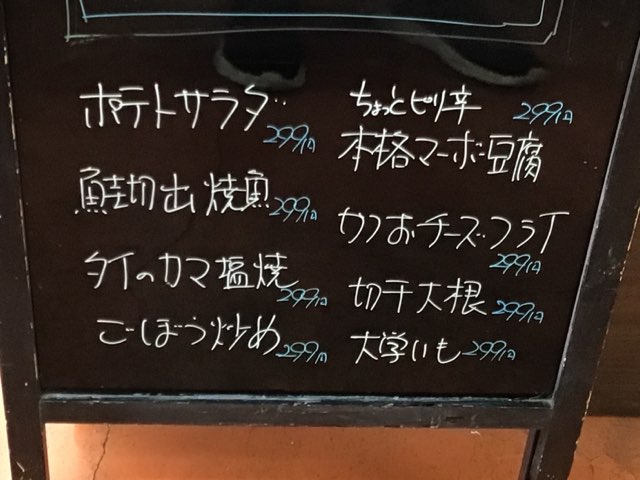 ポテトサラダ
299円
鮭切出焼魚
299円
タイのカマ塩焼
299円
ごぼう炒め
299円
ちょっとピリ辛
299円
本格マーボー豆腐
カツおチーズフライ
299円
切干大根
299円
大学いも
299円